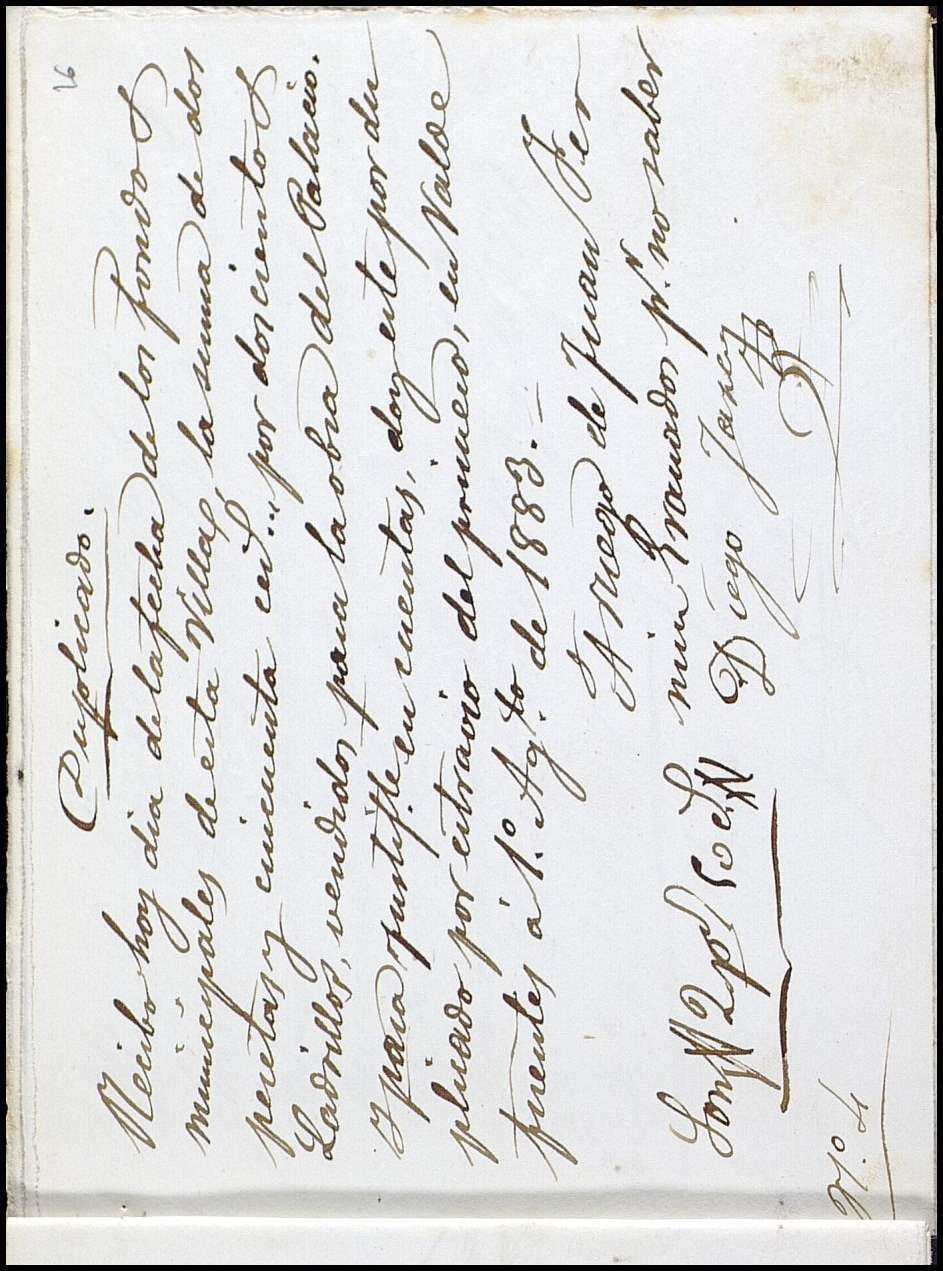 16
Duplicado.
Recibo hoy dia de la fecha de los fondos
municipales de esta Villa, la suma de dos
pesetas y cincuenta ces." por doscientos
Ladrillos, vendidos para la obra del Palacio.
y para justif.e en cuentas, doy este por du
plicado por estravio del primero, en Valde
fuentes á 1.o Ag.to de 1883.=
A ruego de Juan Fer
min Granados p.r no saber
Son 2 p.s 50 c.s Diego
N.o 4